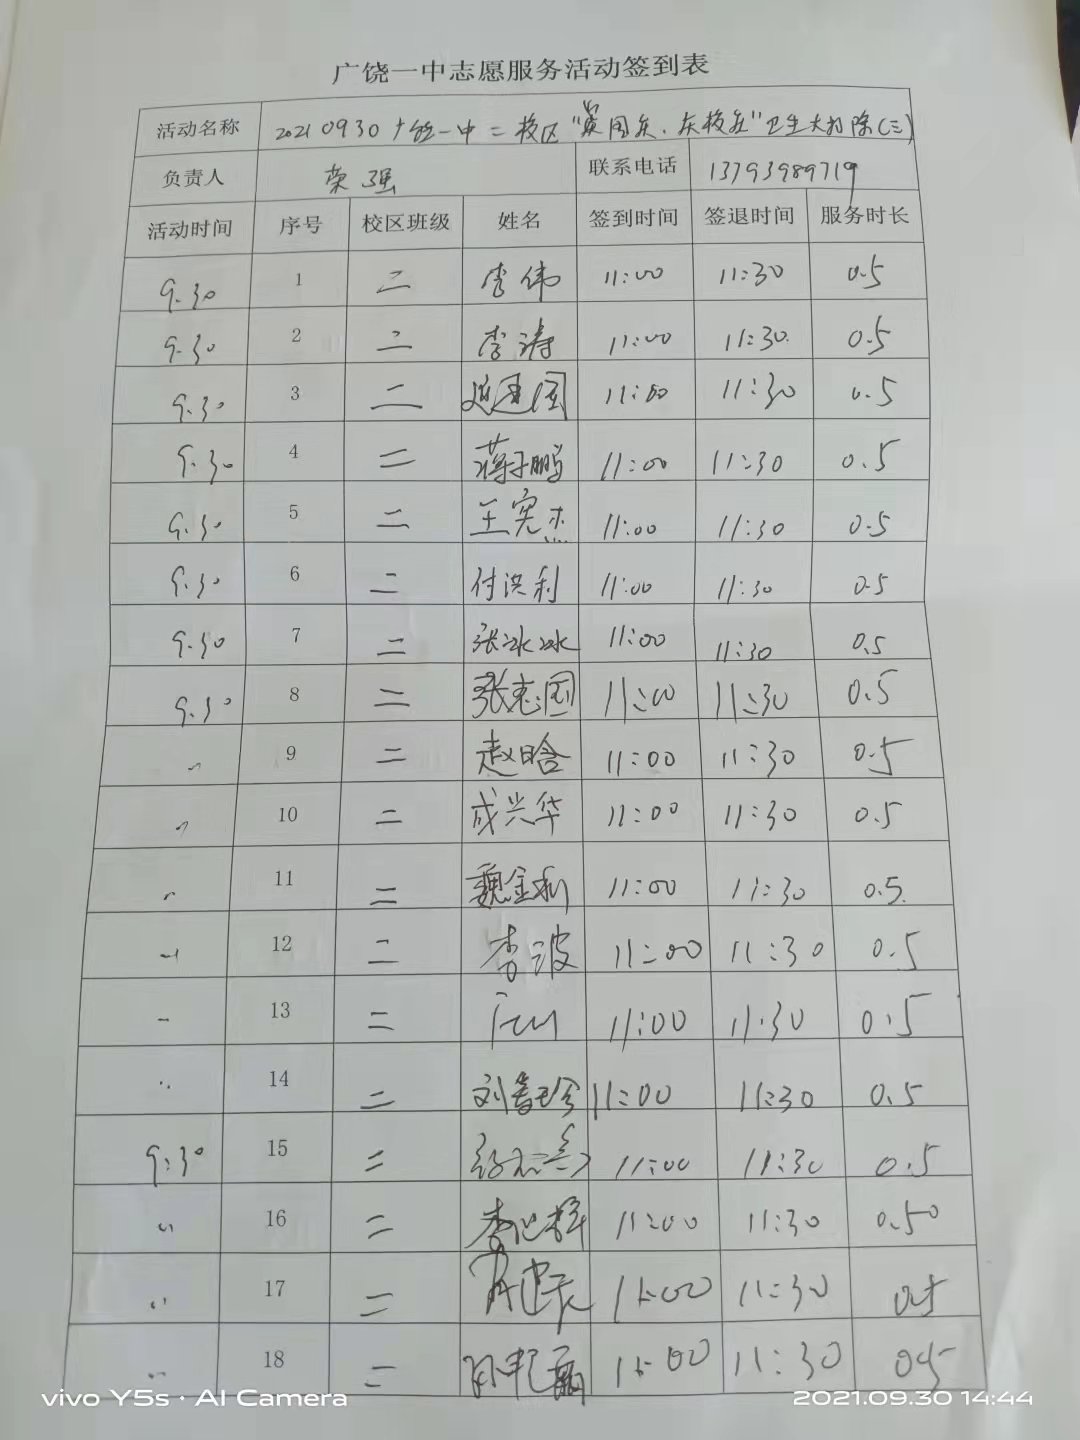 广饶一中志愿服务活动签到表
活动名称 20210930广饶一中二校区"冀国庆、庆校庆"卫生大扫除(三)
负责人 荣强 联系电话 13793989719
活动时间 序号 校区班级 姓名 签到时间 签退时间 服务时长
9.30 1 二 李伟 11:00 11:30 0.5
9.30 2 二 李涛 11:00 11:30 0.5
9.30 3 二 建国 11:00 11:30 0.5
9.30 4 二 蒋子鹏 11:00 11:30 0.5
9.30 5 二 王宪杰 11:00 11:30 0.5
9.30 6 二 付洪利 11:00 11:30 0.5
9.30 7 二 张冰冰 11:00 11:30 0.5
9.30 8 二 张志国 11:00 11:30 0.5
〃 9 二 赵晗 11:00 11:30 0.5
〃 10 二 成兴华 11:00 11:30 0.5
〃 11 二 魏金利 11:00 11:30 0.5
〃 12 二 李波 11:00 11:30 0.5
13 二 11:00 11:30 0.5
〃 14 二 刘 11:00 11:30 0.5
9:30 15 二 11:00 11:30 0.5
〃 16 二 李 11:00 11:30 0.50
〃 17 二 11:00 11:30 0.5
18 二 11:00 11:30 0.5
vivo Y5s · AI Camera 2021.09.30 14:44